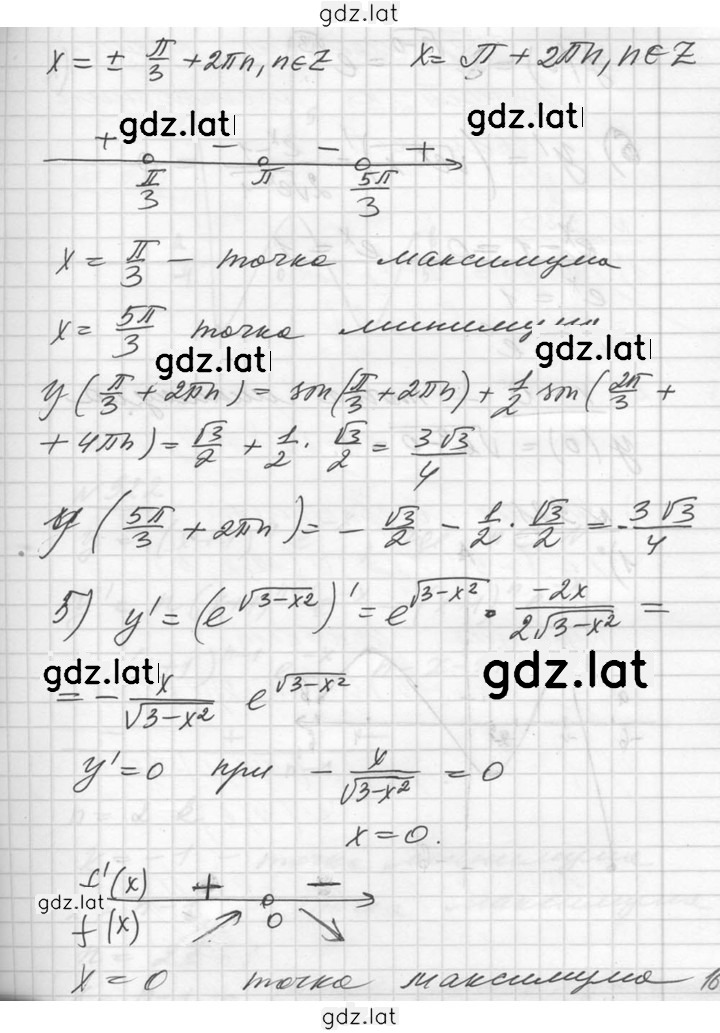 gdz.lat
x = ± π/3 + 2πn, n∈Z x = π + 2πn, n∈Z
gdz.lat gdz.lat
+ − − +
π/3 π 5π/3
x = π/3 − точка максимума
x = 5π/3 точка
gdz.lat gdz.lat
y(π/3 + 2πn) = sin(π/3 + 2πn) + 1/2 sin(2π/3 +
+ 4πn) = √3/2 + 1/2 · √3/2 = 3√3/4
y(5π/3 + 2πn) = − √3/2 − 1/2 · √3/2 = −3√3/4
5) y' = (e^√(3−x²))' = e^√(3−x²) · −2x/2√(3−x²) =
gdz.lat gdz.lat
= − x/√(3−x²) e^√(3−x²)
y' = 0 при − x/√(3−x²) = 0
x = 0.
f'(x) + −
gdz.lat
f(x) 0
x = 0 точка максимума
gdz.lat